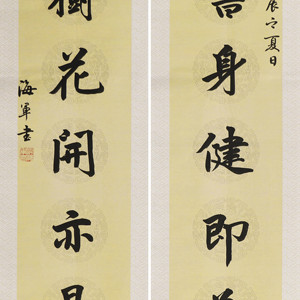 辰之夏日
身健即
樹花開亦
海軍書